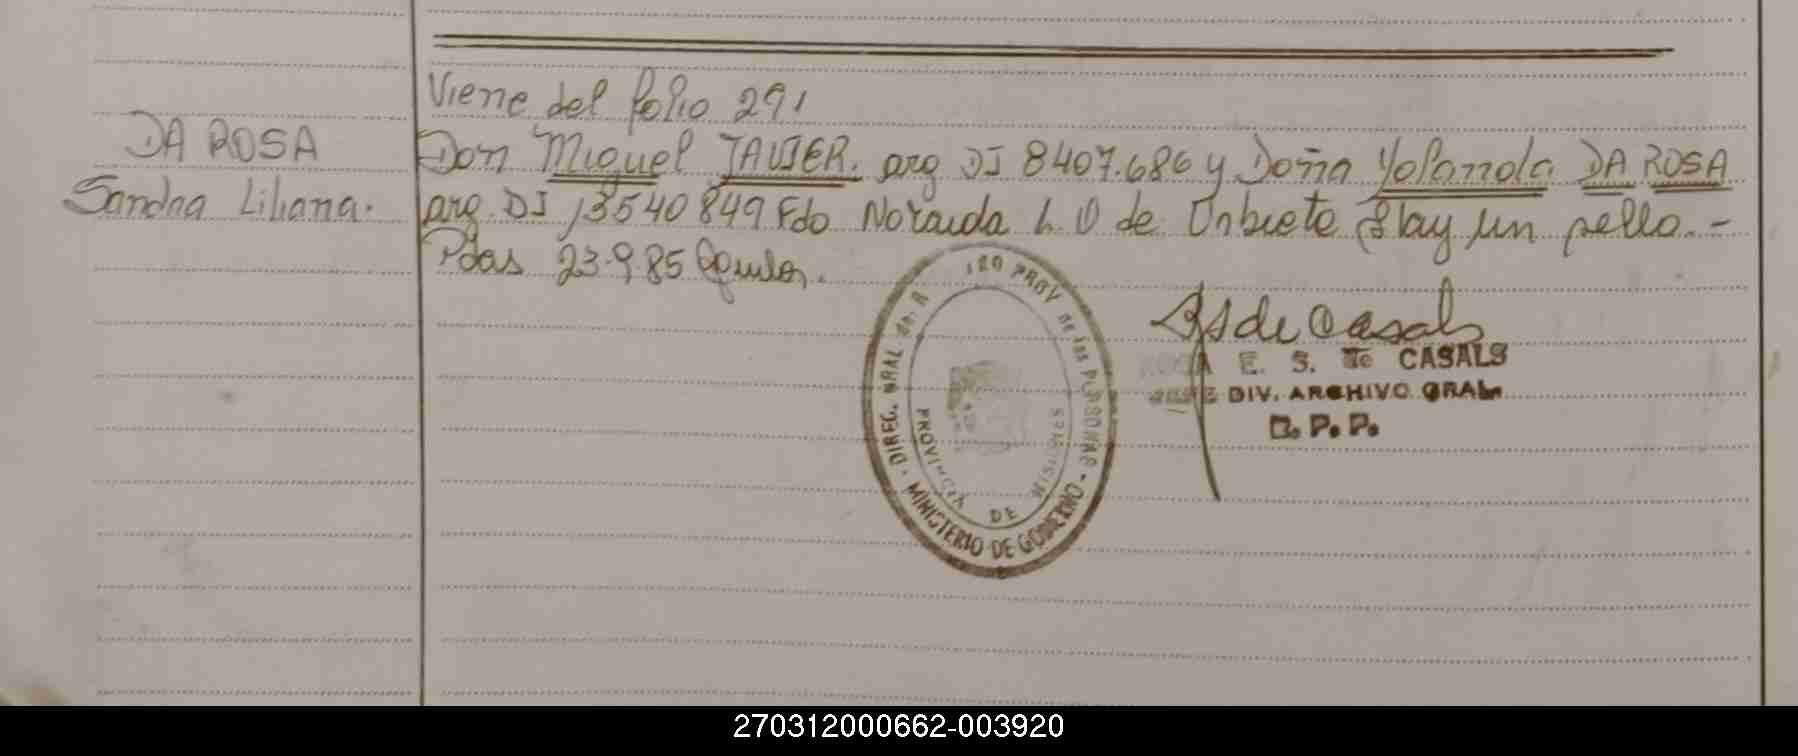 Viene del folio 291
DA ROSA
Sandra Liliana.
Don Miguel JAVIER. arg DI 8407.686 y Doña Yolanda DA ROSA
arg. DI 13540849 Fdo Noraida L. O de Urbieta Hay un sello.-
Pdas 23.9.85
E. S. de CASALS
JEFE DIV. ARCHIVO GRAL.
R. P. P.
DIREC. GRAL DEL REGISTRO PROV DE las PERSONAS - MINISTERIO DE GOBIERNO -
PROVINCIA DE MISIONES
270312000662-003920